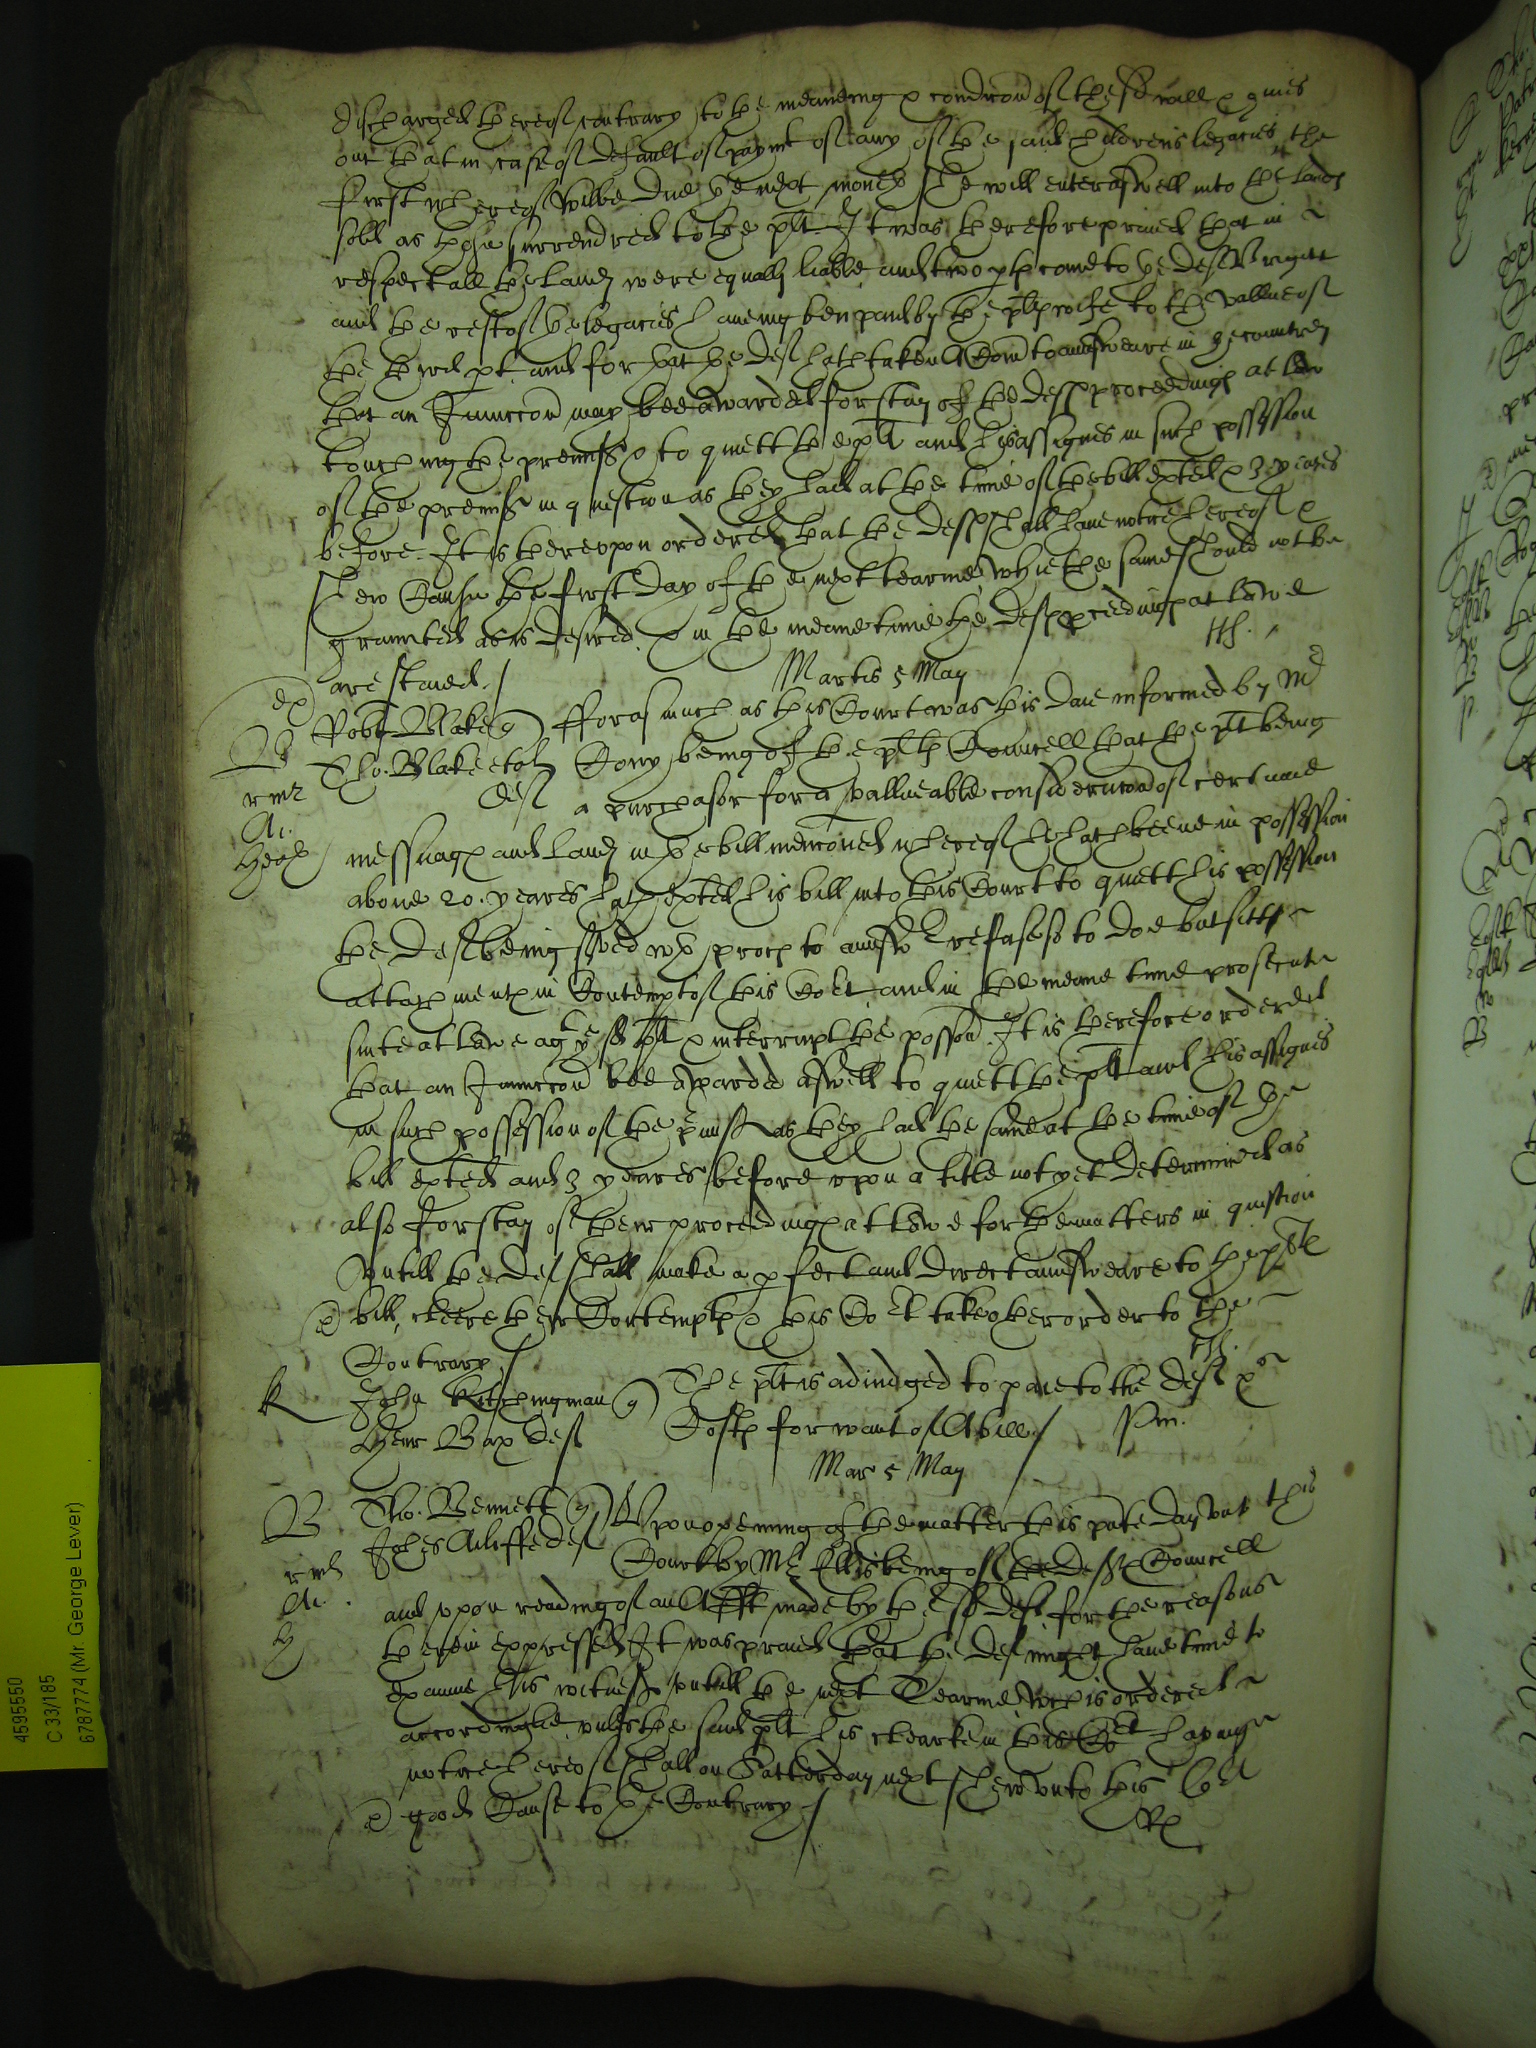 discharged thereof contrary to the meaneing & condicon of the sd will & gives
out that in case of default of paymt of any of the said childrens legacies the
first whereof wilbe due the next moneth she will enter aswell into the lands
sold as those surrendred to the plt It was therefore praied that in
respect all the lands were equally liable and two pts come to the deft in right
and the rest of the legacies haveing ben paid by the plt to the vallue of
the third pt and for that the def hath taken a Comn to answeare in the countrey
that an Iniunccon may bee awarded for stay of the defts proceedings at law
touching the premisses & to quiett the plt and his assignes in such possession
of the premisses in question as they had at the time of the bill exted & 3 yeares
before. It is thereupon ordered that the defts shall have notice hereof &
shew Cause the first day of the next tearme why the same should not be
graunted as is desired & in the meane time the defts pceedings at lawe
are staied. / Hh.
Martis 5 May
Robt Blake q
Tho. Blake et al
def
fforasmuch as this Court was this daie informed by Mr
Cony being of the plts Councell that the plt being
a purchasor for a valluable consideracon of certaine
messuages and lands in the bill menconed whereof he hath beene in possession
above 20. yeares hath exted his bill into this Court to quiett his possession
the def being served wth proces to answr refuseth so to doe but sitts
attachmentes in Contempt of this Cort and in the meane time prosecute
suite at lawe agt ye sd plt & interrupt the posson. It is therefore ordered
that an Iniunccon bee awarded aswell to quiett the plt and his assignes
in such possession of the pmisses as they had the same at the time of the
bill exted and 3 yeares before upon a title not yet determined as
also for stay of their proceedings at lawe for the matters in question
Untill the def shall make a pfect and direct answeare to the plts
bill, cleere their Contempts & this Cort take other order to the
Contrary / Hh.
K
John Kitchingman q
Henr Bax def
The plt is adiudged to paie to the deft xs
Costs for want of A bill. /
Mar 5 May
B
Tho. Bennett q
Johes Ailiffe def
Upon opening of the matter this pnte day unto this
Court by Mr Ellis being of the defts Councell
and upon reading of an Afft made by the sd deft for the reasons
therein expressed It was praied that the def might have time to
examine his witnesses untill the next Tearme wch is ordered
accordinglie, unles the said plt his clearke in this Cort having
notice hereof shall on Satterday next shew unto this Cort
good Cause to the Contrary /
4595550
C 33/185
6787774 (Mr. George Lever)